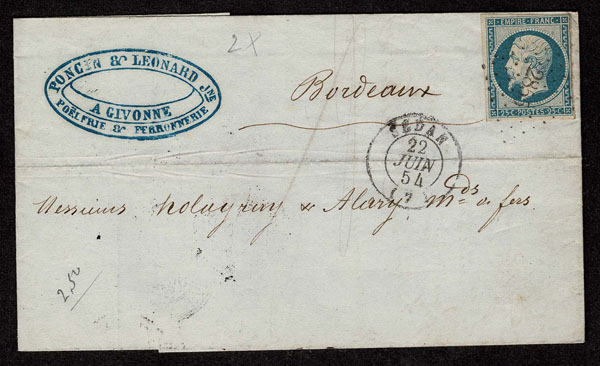 2X
PONCIN & LEONARD JNE
A GIVONNE
POËLERIE & FERRONNERIE
EMPIRE FRANC
25 C POSTES 25 C
Bordeaux
SEDAN
22
JUIN
54
Messieurs & Alary Mds de fers
2,50